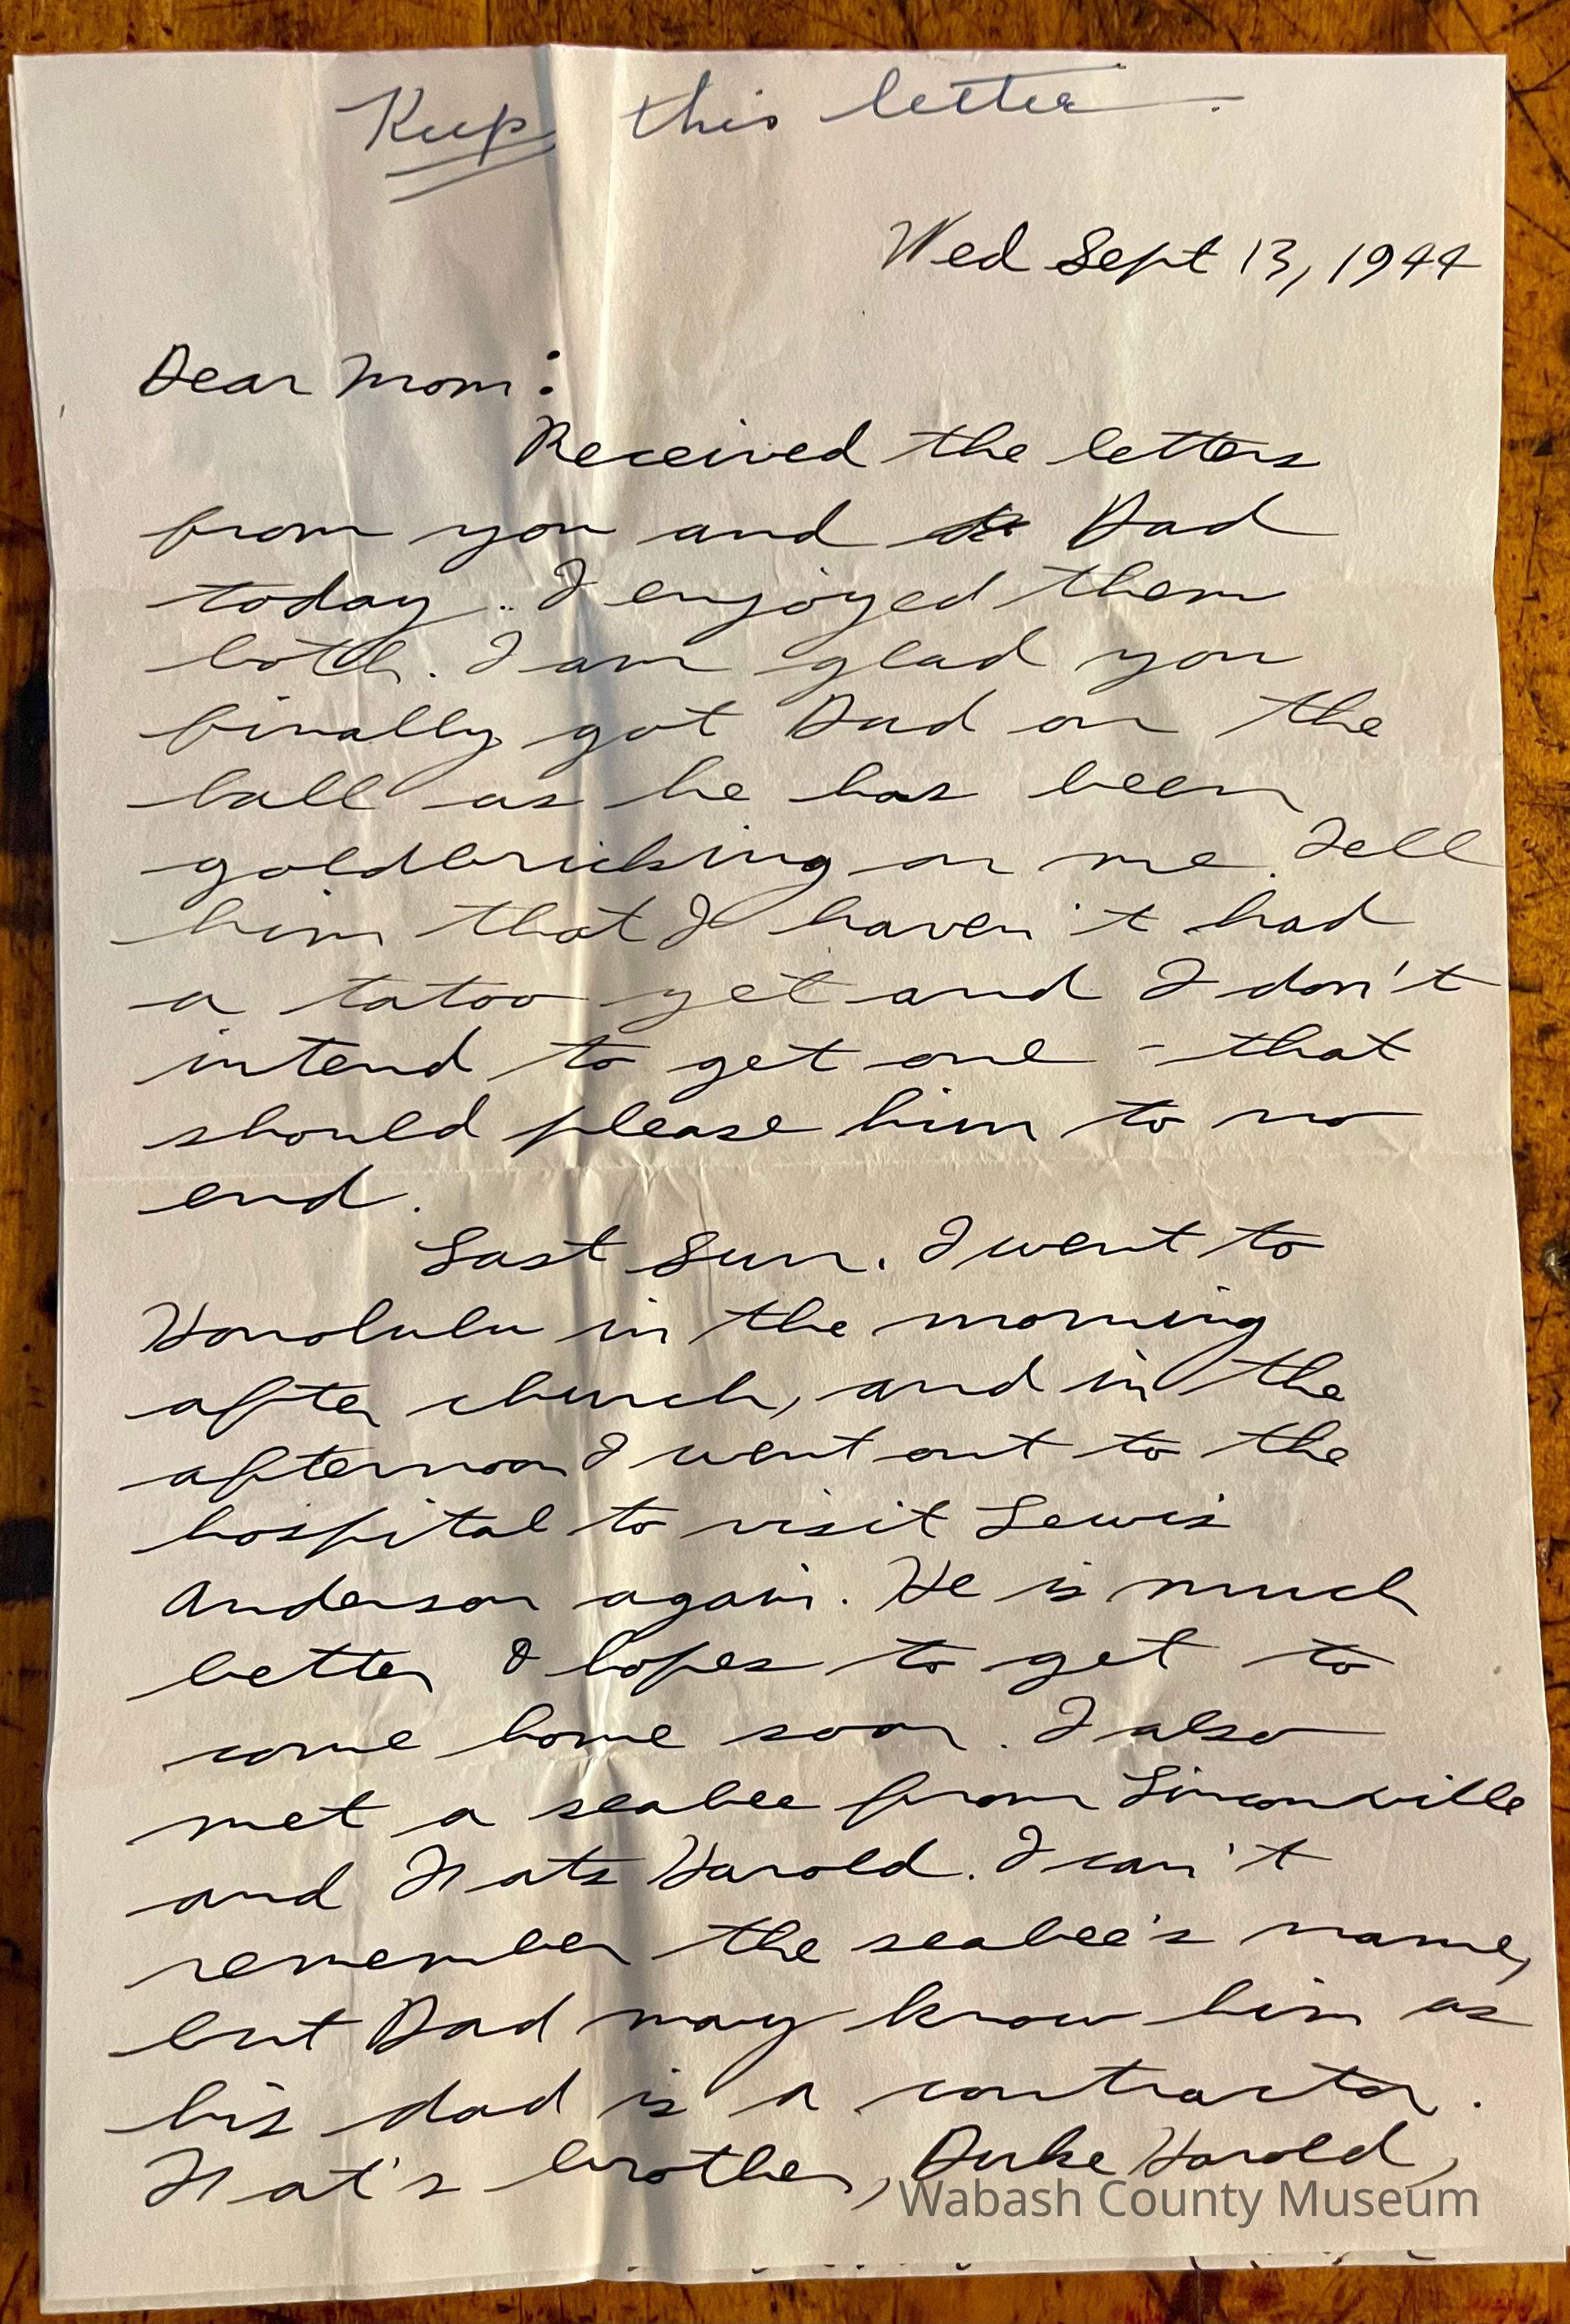 Keep this letter.
Wed Sept 13, 1944
Dear Mom:
Received the letters
from you and Dad
today. I enjoyed them
both. I am glad you
finally got Dad on the
ball as he has been
goldbricking on me. Tell
him that I haven't had
a tatoo yet and I don't
intend to get one - that
should please him to no
end.
Last Sun. I went to
Honolulu in the morning
after church, and in the
afternoon I went out to the
hospital to visit Lewis
Anderson again. He is much
better & hopes to get to
come home soon. I also
met a seabee from
and Nats Harold. I can't
remember the seabee's name,
but Dad may know him as
his dad is a contractor.
Nat's brother, Duke Harold,
Wabash County Museum